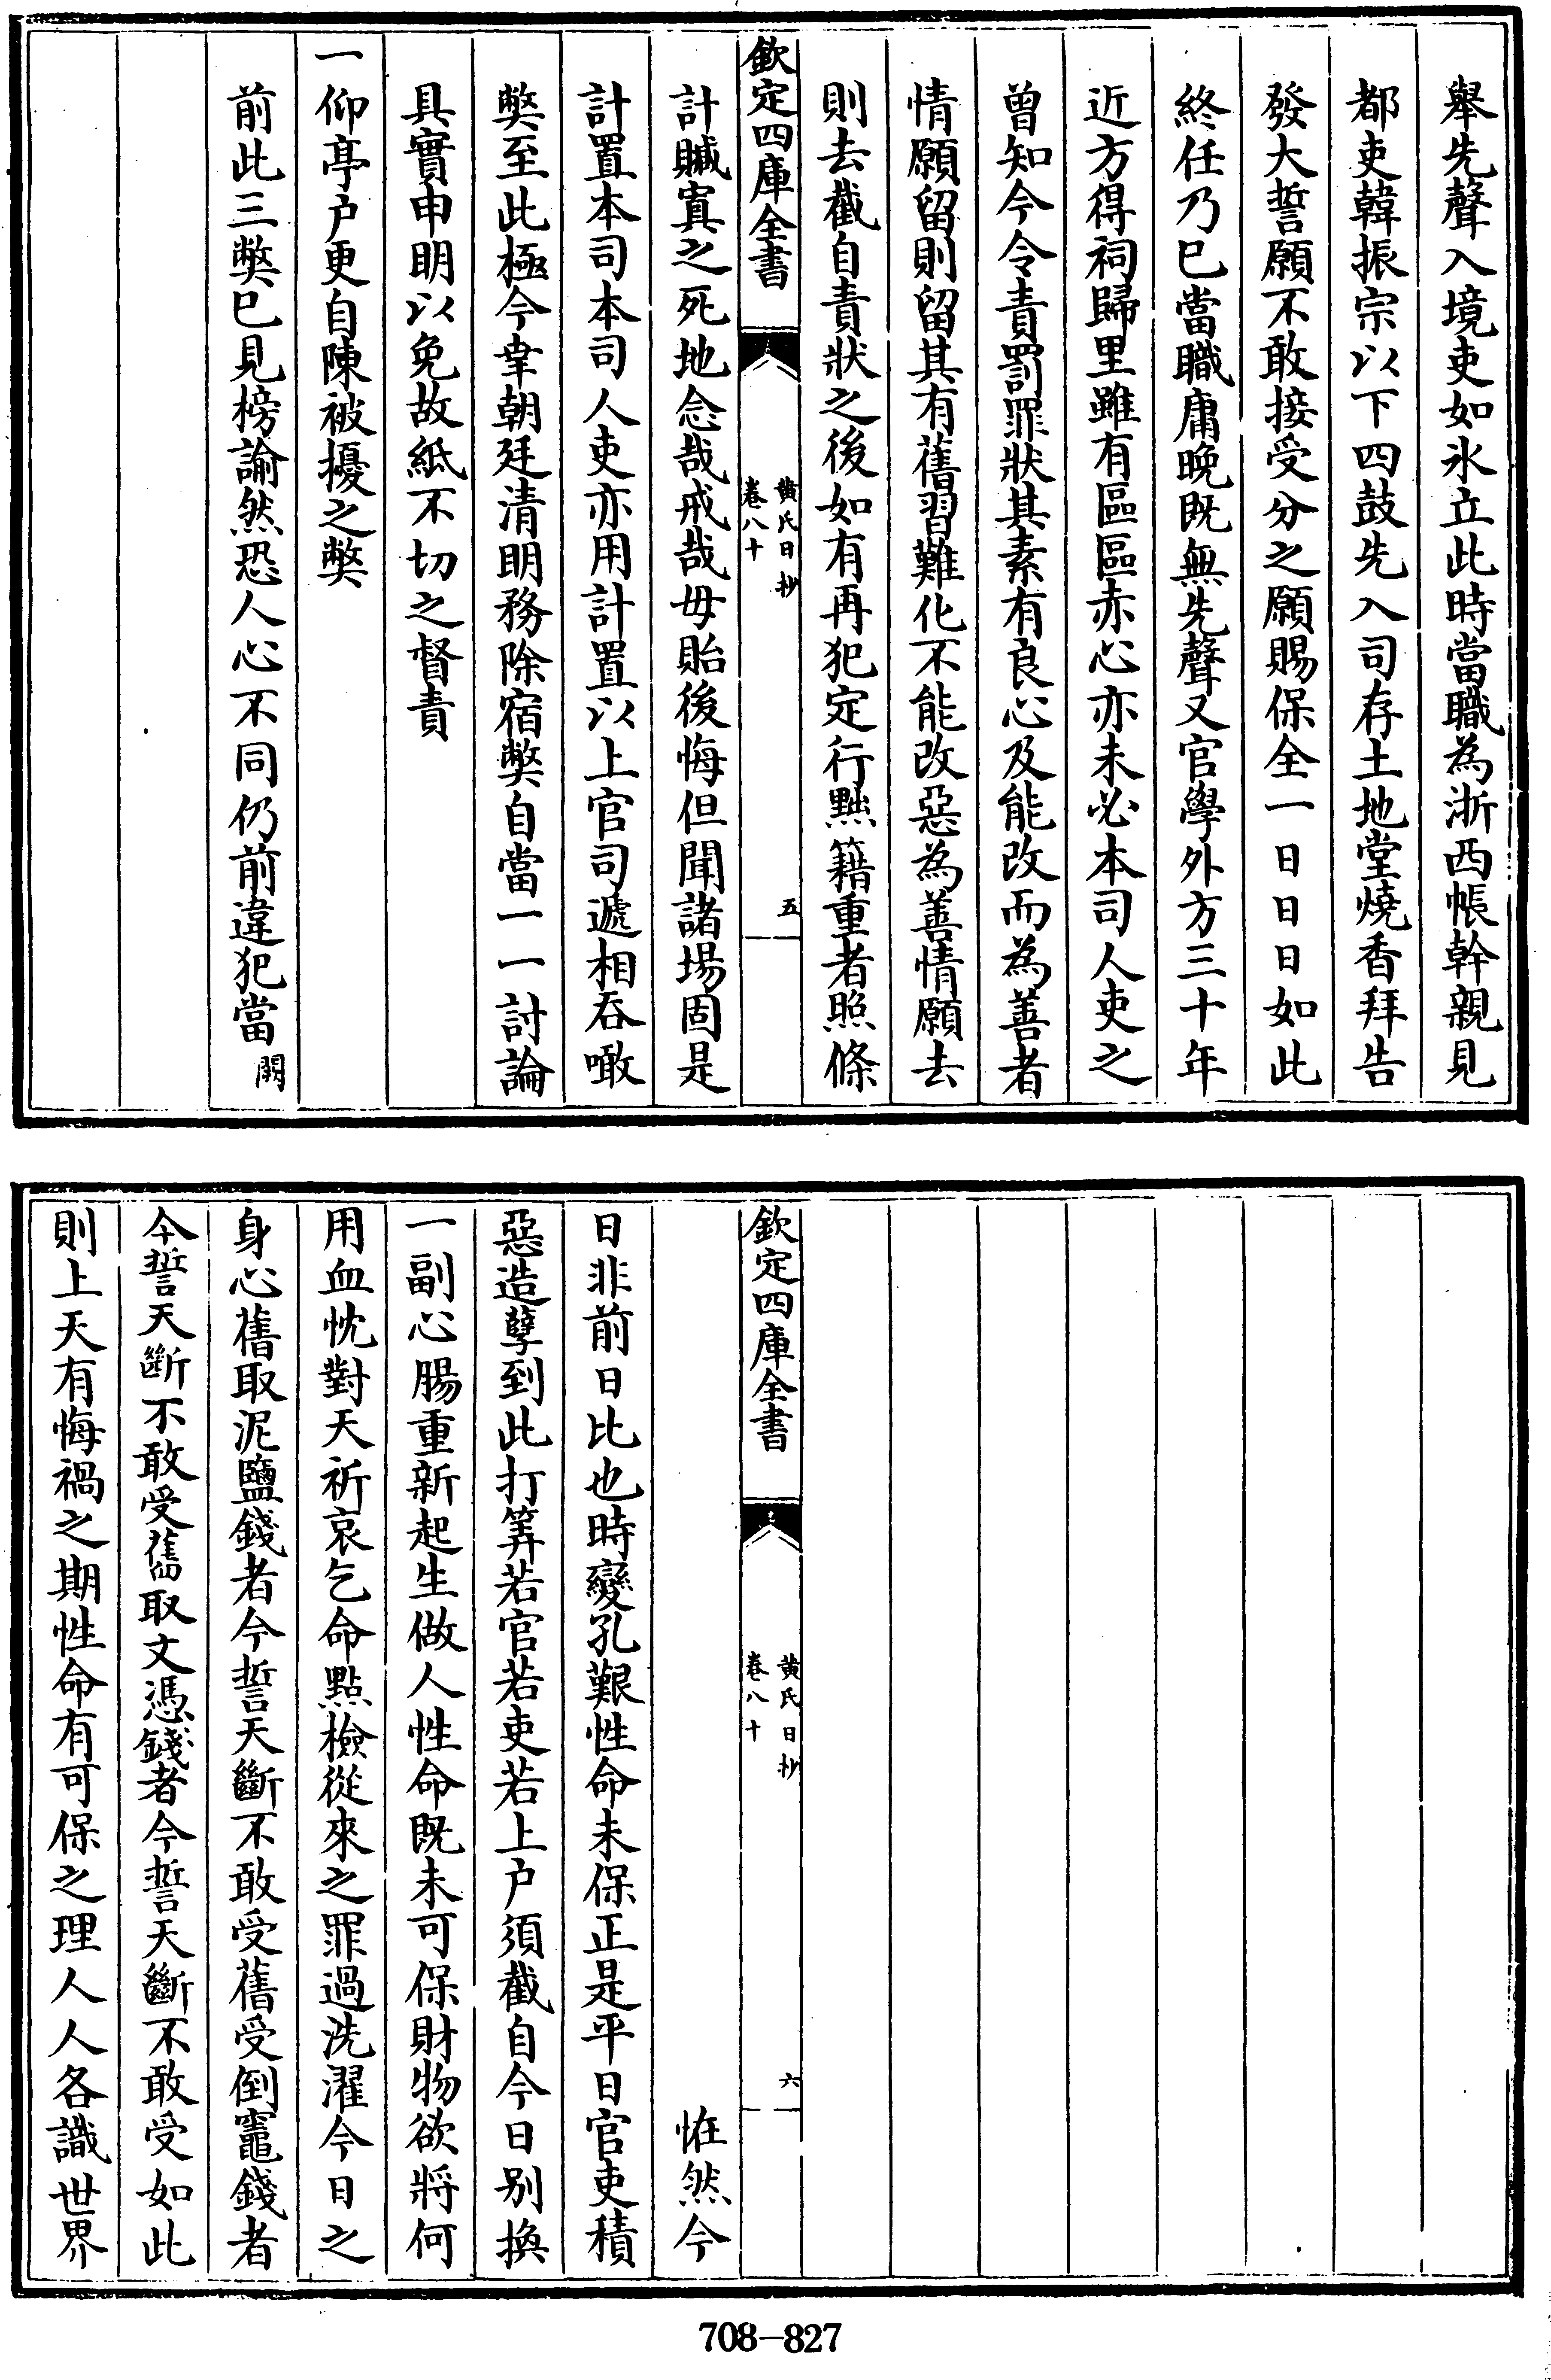 舉先聲入境吏如氷立此時當職為浙西帳幹親見
都吏韓振宗以下四鼓先入司存土地堂燒香拜告
發大誓願不敢接受分之願賜保全一日日日如此
終任乃已當職庸晚既無先聲又官學外方三十年
近方得祠歸里雖有區區赤心亦未必本司人吏之
曾知今令責罰罪狀其素有良心及能改而為善者
情願留則留其有舊習難化不能改惡為善情願去
則去截自責狀之後如有再犯定行黥籍重者照條
欽定四庫全書
黄氏日抄
卷八十
五
計贓寘之死地念哉戒哉毋貽後悔但聞諸場固是
計置本司本司人吏亦用計置以上官司遞相吞噉
弊至此極今幸朝廷清明務除宿弊自當一一討論
具實申明以免故紙不切之督責
一仰亭户更自陳被擾之弊
前此三弊已見榜諭然恐人心不同仍前違犯當闕
欽定四庫全書
黄氏日抄
卷八十
六
恠然今
日非前日比也時變孔艱性命未保正是平日官吏積
惡造孽到此打筭若官若吏若上户須截自今日别換
一副心腸重新起生做人性命既未可保財物欲將何
用血忱對天祈哀乞命點檢從來之罪過洗濯今日之
身心舊取泥鹽錢者今誓天斷不敢受舊受倒竈錢者
今誓天斷不敢受舊取文憑錢者今誓天斷不敢受如此
則上天有悔禍之期性命有可保之理人人各識世界
708—827